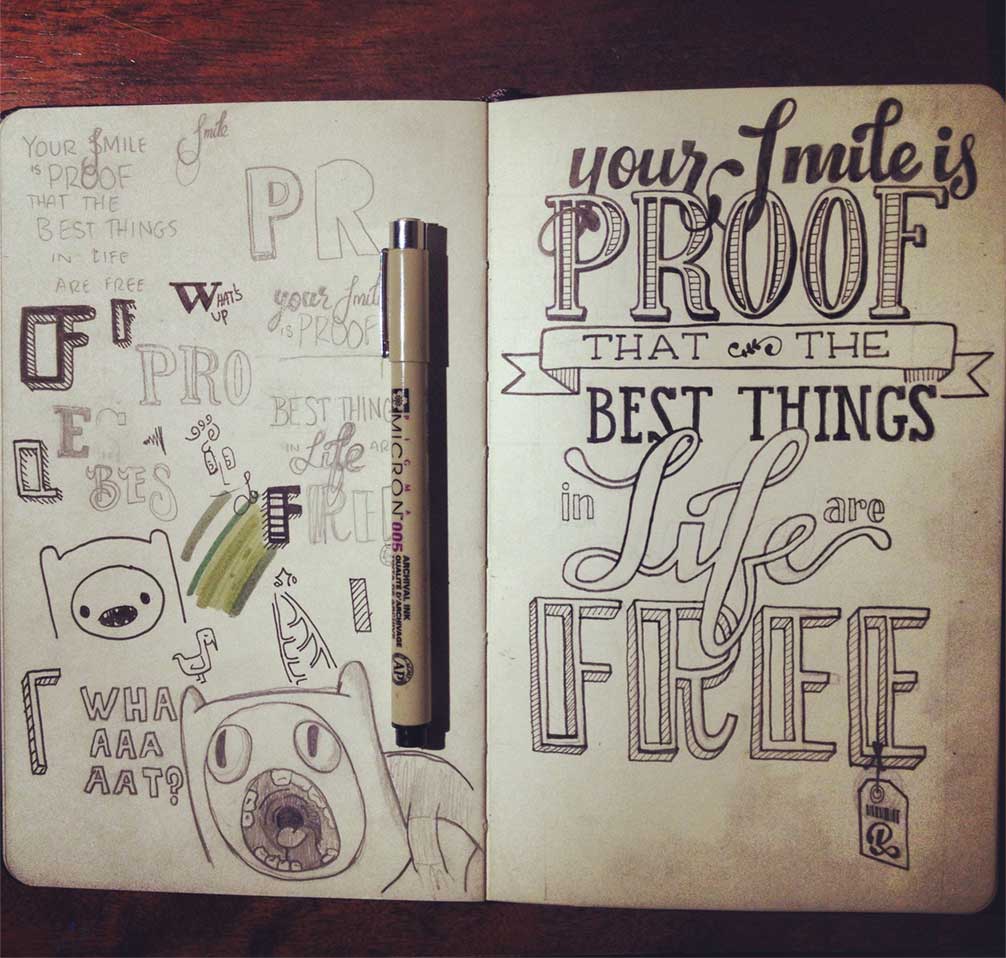 YOUR SMILE
IS PROOF
THAT THE
BEST THINGS
IN LIFE
ARE FREE
Smile
PR
F F
WHAT'S
UP
your Smil
IS PROOF
PRO
BEST THING
IN Life AR
FREE
E S
BES
F
WHA
AAA
AAT?
PIGMA
MICRON 005
ARCHIVAL INK
QUALITÉ D'ARCHIVAGE
AP
your Smile is
PROOF
THAT THE
BEST THINGS
in Life are
FREE
R